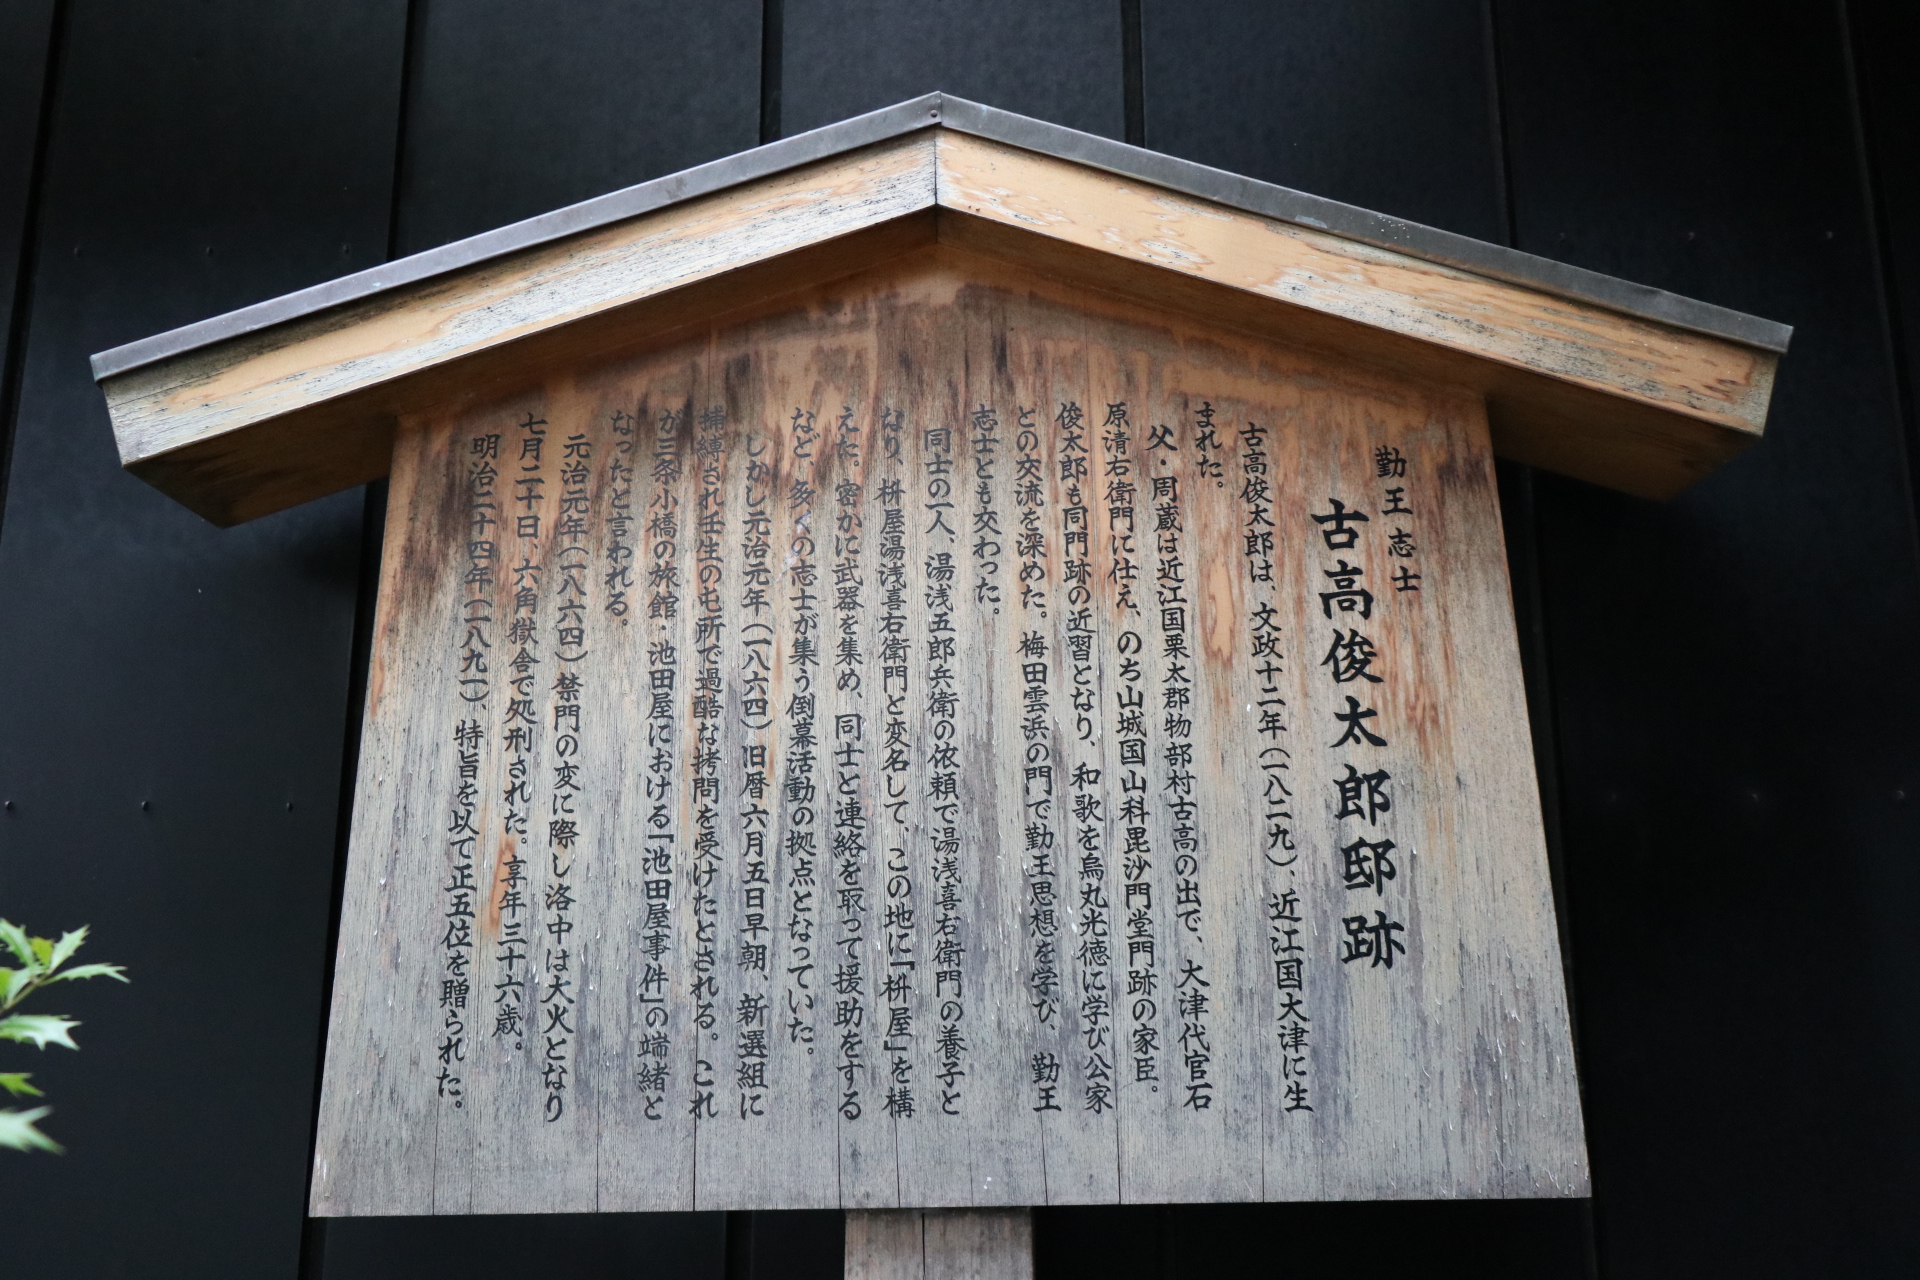 勤王志士
古高俊太郎邸跡
古高俊太郎は、文政十二年(一八二九)、近江国大津に生
まれた。
父・周蔵は近江国栗太郡物部村古高の出で、大津代官石
原清右衛門に仕え、のち山城国山科毘沙門堂門跡の家臣。
俊太郎も同門跡の近習となり、和歌を烏丸光徳に学び公家
との交流を深めた。梅田雲浜の門で勤王思想を学び、勤王
志士とも交わった。
同士の一人、湯浅五郎兵衛の依頼で湯浅喜右衛門の養子と
なり、枡屋湯浅喜右衛門と変名して、この地に「枡屋」を構
えた。密かに武器を集め、同士と連絡を取って援助をする
など、多くの志士が集う倒幕活動の拠点となっていた。
しかし元治元年(一八六四)旧暦六月五日早朝、新選組に
捕縛され壬生の屯所で過酷な拷問を受けたとされる。これ
が三条小橋の旅館・池田屋における「池田屋事件」の端緒と
なったと言われる。
元治元年(一八六四)禁門の変に際し洛中は大火となり
七月二十日、六角獄舎で処刑された。享年三十六歳。
明治二十四年(一八九一)、特旨を以て正五位を贈られた。